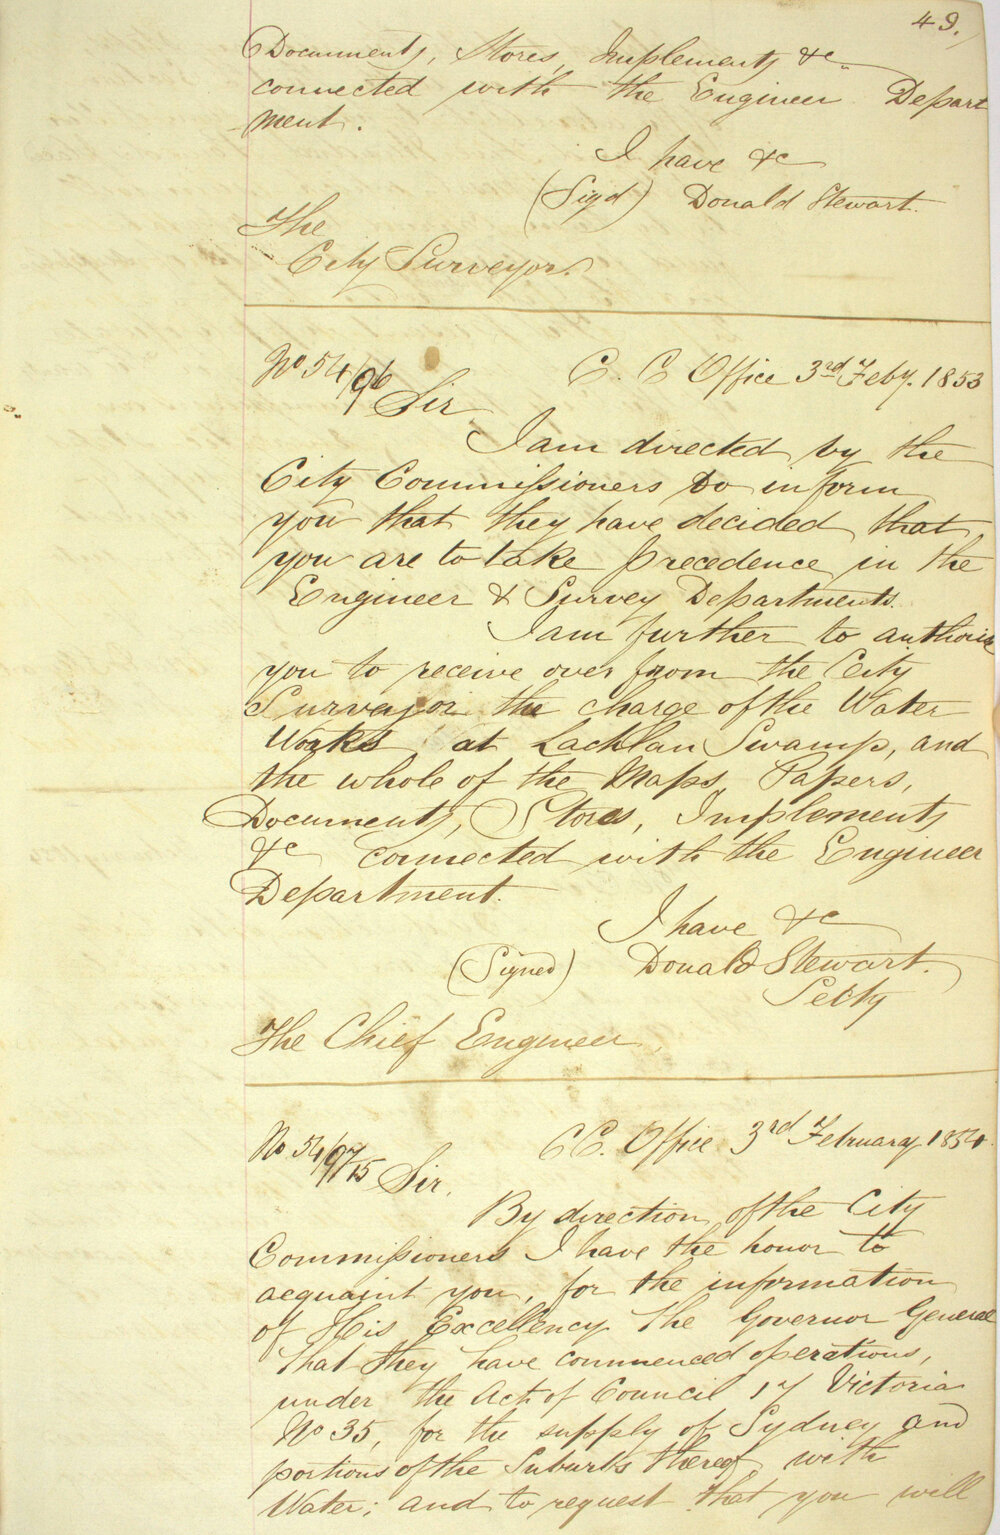 49.
Documents, Stores, Implements &c
connected with the Engineer Depart
-ment.
I have &c
(Sigd) Donald Stewart.
The
City Surveyor.
No 54/96 C. C Office 3rd Feby. 1853
Sir
I am directed by the
City Commissioners to inform
you that they have decided that
you are to take precedence in the
Engineer & Survey Departments.
I am further to authorise
you to receive over from the City
Surveyor the charge of the Water
Works at Lachlan Swamp, and
the whole of the Maps, Papers,
Documents, Stores, Implements
&c connected with the Engineer
Department.
I have &c
(Signed) Donald Stewart.
Secty
The Chief Engineer.
No 54/97/15 C C. Office 3rd February 1854
Sir,
By direction of the City
Commissioners I have the honor to
acquaint you, for the information
of His Excellency the Governor General
that they have commenced operations,
under the Act of Council 17 Victoria
No 35, for the supply of Sydney and
portions of the Suburbs thereof with
Water; and to request that you will